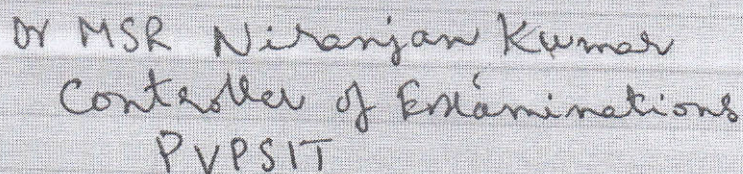 Dr MSR Niranjan Kumar
Controller of Examinations
PVPSIT